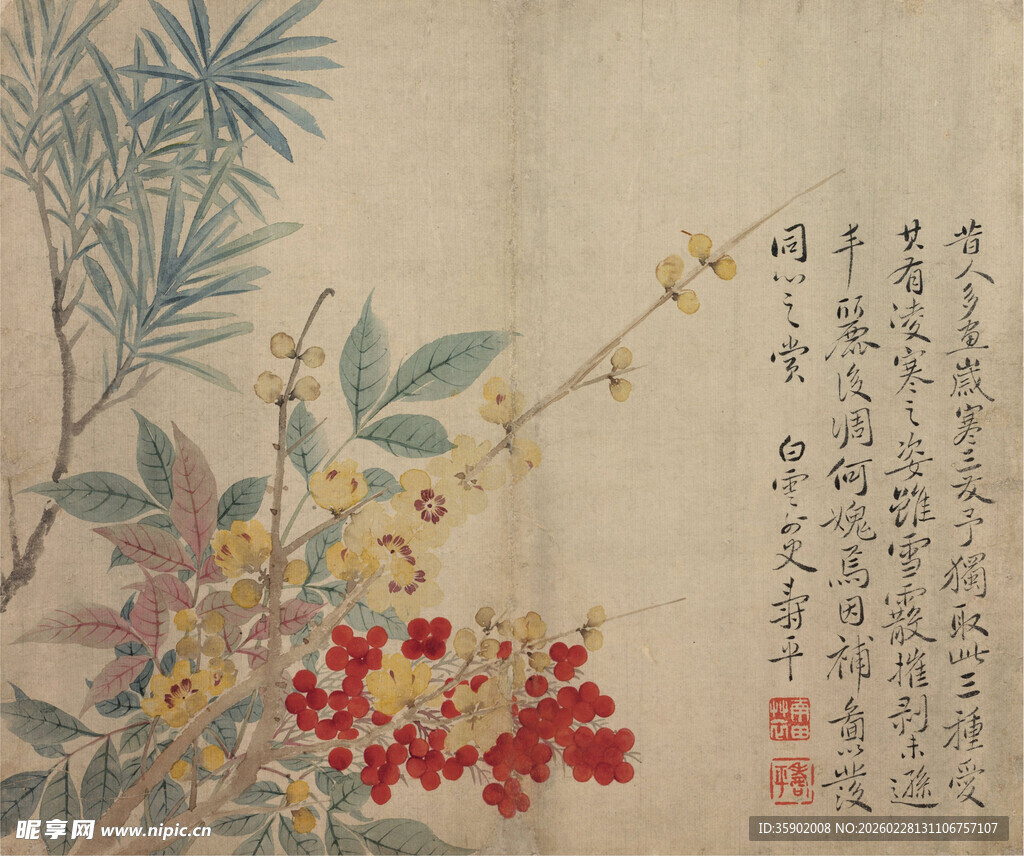 昔人多畫歲寒三友予獨取此三種愛
其有凌寒之姿雖雪霰摧剥未遜
丰麗後凋何媿焉因補圖以發
同心之賞
白雲外史壽平
南田艸衣
壽平
昵享网 www.nipic.cn
ID:35902008 NO:20260228131106757107